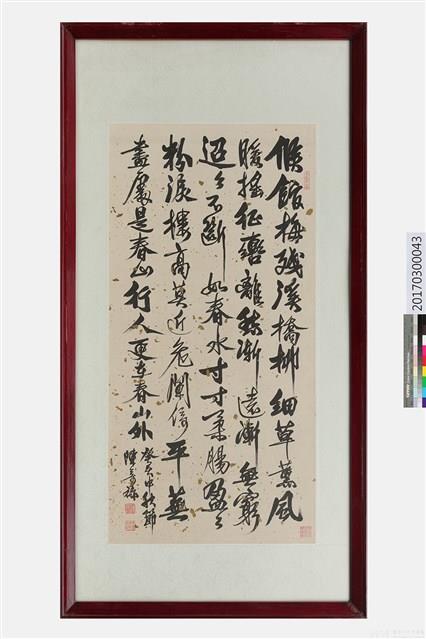 候館梅殘溪橋柳細草薰風
暖搖征轡離愁漸遠漸無窮
迢々不斷如春水寸寸柔腸盈々
粉淚樓高莫近危闌倚平蕪
盡處是春山行人更在春山外
癸亥中秋節
陳
20170300043